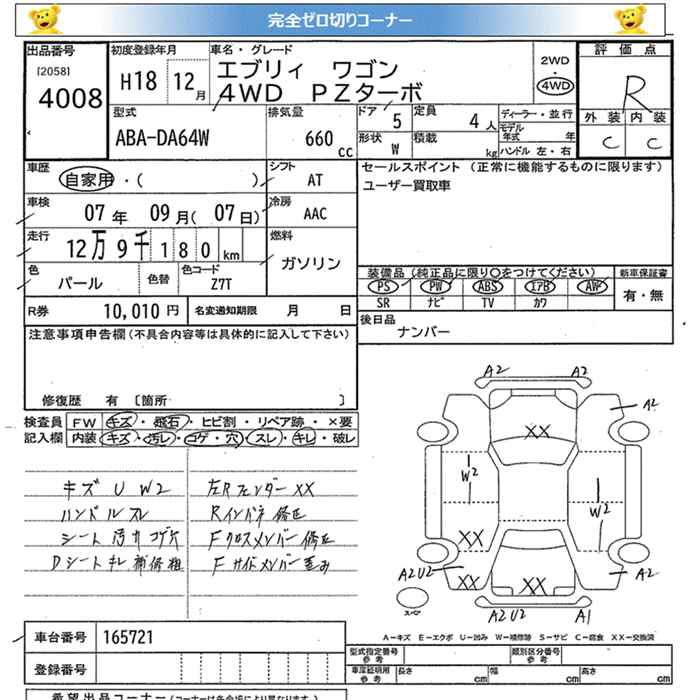 完全ゼロ切りコーナー
出品番号
[2058]
4008
初度登録年月
H18 12月
車名・グレード
エブリィ ワゴン
4WD PZターボ
2WD
・
4WD
評価点
R
外装 内装
C C
型式
ABA-DA64W
排気量
660 cc
ドア 5
定員 4人
ディーラー・並行
形状 W
積載 kg
モデル年式 年
ハンドル 左・右
車歴
自家用・( )
シフト
AT
セールスポイント (正常に機能するものに限ります)
ユーザー買取車
車検
07年 09月(07日)
冷房
AAC
走行
12万9千180km
燃料
ガソリン
色
パール
色替
色コード
Z7T
装備品(純正品に限り〇をつけてください)
新車保証書
PS PW ABS エアB AW
SR ナビ TV カワ
有・無
R券 10,010円
名変通知期限 月 日
後日品
ナンバー
注意事項申告欄(不具合内容等は具体的に記入して下さい)
修復歴 有 [箇所 ]
検査員記入欄
FW キズ・飛石・ヒビ割・リペア跡・×要
内装 キズ・汚れ・コゲ・穴・スレ・キレ・破レ
キズ U W2
ハンドルスレ
シート汚れコゲ穴
Dシートキレ補修粗
左Rフェンダー XX
Rインパネ修正
Fクロスメンバー修正
Fサイドメンバー歪み
A2 A2
A2
XX
W2
W2
XX
A2U2
XX
XX
A2
A2U2
A1
スペア
A-キズ E-エクボ U-凹み W-補修跡 S-サビ C-腐食 XX-交換済
車台番号 165721
登録番号
型式指定番号 参考
類別区分番号 参考
車庫証明用 参考
長さ cm
幅 cm
高さ cm
希望出品コーナー